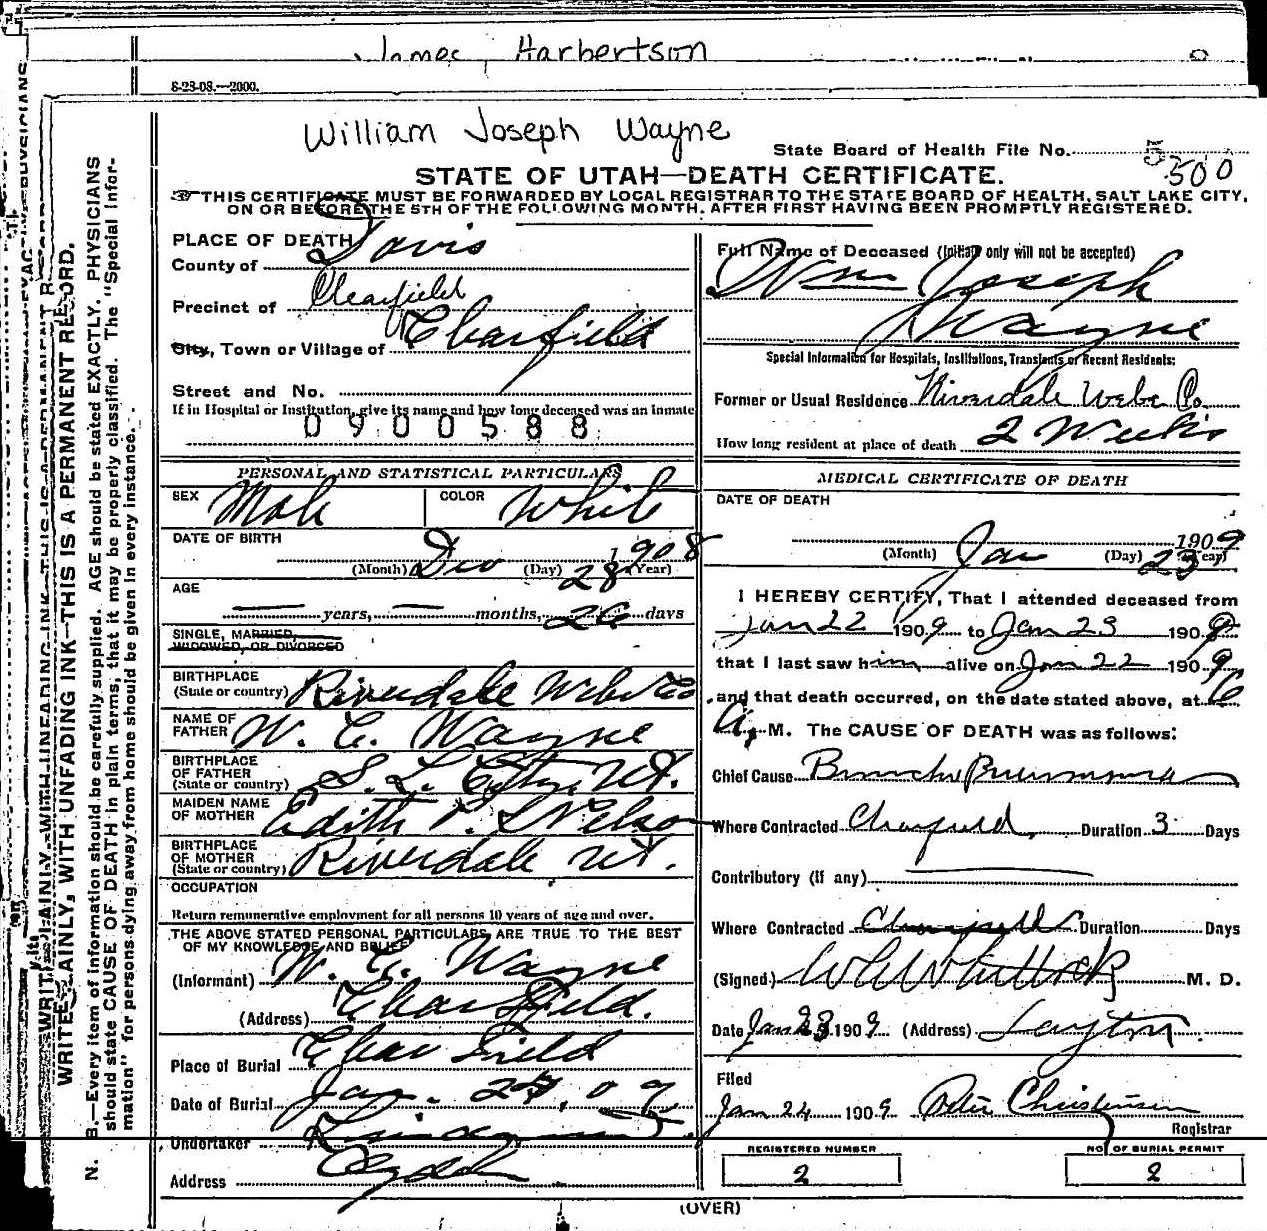 James Harbertson
8-28-08.—2000.
William Joseph Wayne
State Board of Health File No. 5
500
STATE OF UTAH—DEATH CERTIFICATE.
THIS CERTIFICATE MUST BE FORWARDED BY LOCAL REGISTRAR TO THE STATE BOARD OF HEALTH, SALT LAKE CITY,
ON OR BEFORE THE 5TH OF THE FOLLOWING MONTH, AFTER FIRST HAVING BEEN PROMPTLY REGISTERED.
PLACE OF DEATH
County of Davis
Precinct of Clearfield
City, Town or Village of Clearfield
Street and No.
If in Hospital or Institution, give its name and how long deceased was an inmate
0900588
PERSONAL AND STATISTICAL PARTICULARS
SEX Male COLOR White
DATE OF BIRTH
1908
(Month) Dec (Day) 28 (Year)
AGE
— years, — months, 26 days
SINGLE, MARRIED,
WIDOWED, OR DIVORCED
BIRTHPLACE
(State or country) Riverdale Weber Co
NAME OF
FATHER W. C. Wayne
BIRTHPLACE
OF FATHER
(State or country) S. L. City, Ut.
MAIDEN NAME
OF MOTHER Edith Nelson
BIRTHPLACE
OF MOTHER
(State or country) Riverdale Ut.
OCCUPATION
Return remunerative employment for all persons 10 years of age and over.
THE ABOVE STATED PERSONAL PARTICULARS ARE TRUE TO THE BEST
OF MY KNOWLEDGE AND BELIEF
(Informant) W. C. Wayne
(Address) Clearfield.
Place of Burial Clear Field
Date of Burial Jan. 24, 09
Undertaker
Address Ogden
Full Name of Deceased (Initials only will not be accepted)
Wm Joseph
Wayne
Special Information for Hospitals, Institutions, Transients or Recent Residents:
Former or Usual Residence Riverdale Weber Co.
How long resident at place of death 2 Weeks
MEDICAL CERTIFICATE OF DEATH
DATE OF DEATH
1909
(Month) Jan (Day) 23 (Year)
I HEREBY CERTIFY, That I attended deceased from
Jan 22 1909 to Jan 23 1909
that I last saw him alive on Jan 22 1909
and that death occurred, on the date stated above, at 6
A. M. The CAUSE OF DEATH was as follows:
Chief Cause Broncho Pneumonia
Where Contracted Clearfield, Duration 3 Days
Contributory (if any)
Where Contracted Clearfield Duration Days
(Signed) Whitlock M. D.
Date Jan 23 1909 (Address) Layton.
Filed
Jan 24 1909 Peter Christensen
Registrar
REGISTERED NUMBER
2
NO. OF BURIAL PERMIT
2
(OVER)
WRITE PLAINLY, WITH UNFADING INK—THIS IS A PERMANENT RECORD.
N. B.—Every item of information should be carefully supplied. AGE should be stated EXACTLY. PHYSICIANS
should state CAUSE OF DEATH in plain terms, that it may be properly classified. The "Special Infor-
mation" for persons dying away from home should be given in every instance.